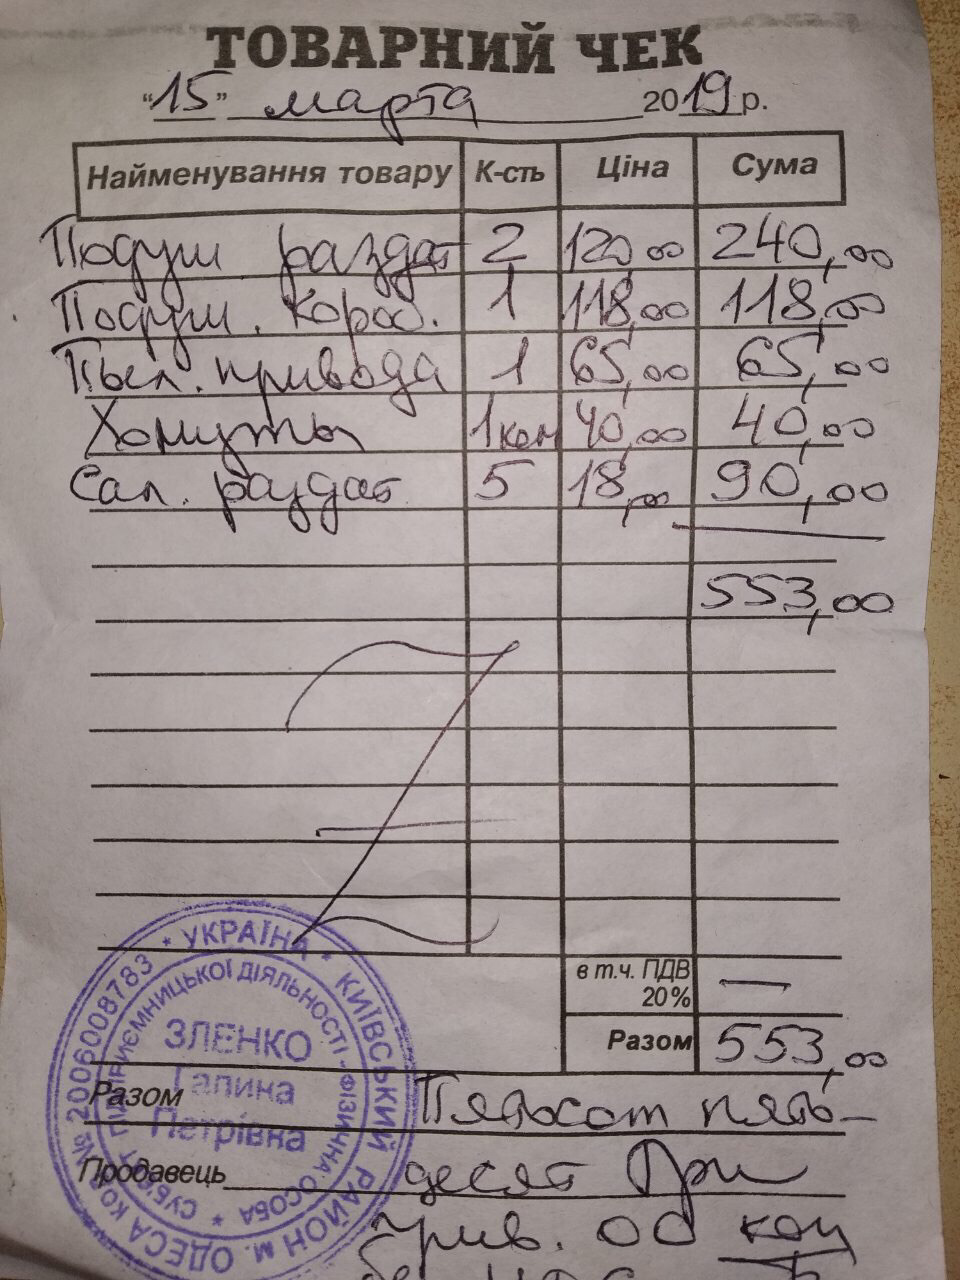 ТОВАРНИЙ ЧЕК
"15" марта 2019 р.
Найменування товару К-сть Ціна Сума
Подуш раздат 2 120,00 240,00
Подуш. короб. 1 118,00 118,00
Пыл. привода 1 65,00 65,00
Хомуты 1 ком 40,00 40,00
Сал. раздат 5 18,00 90,00
553,00
в т.ч. ПДВ 20% —
Разом 553,00
Разом Пятьсот пять-
Продавець десят три
грив. 00 коп
без НДС
* УКРАЇНА * КИЇВСЬКИЙ РАЙОН М. ОДЕСА КОД № 2006008783
СУБ'ЄКТ ПІДПРИЄМНИЦЬКОЇ ДІЯЛЬНОСТІ - ФІЗИЧНА ОСОБА *
ЗЛЕНКО
Галина
Петрівна